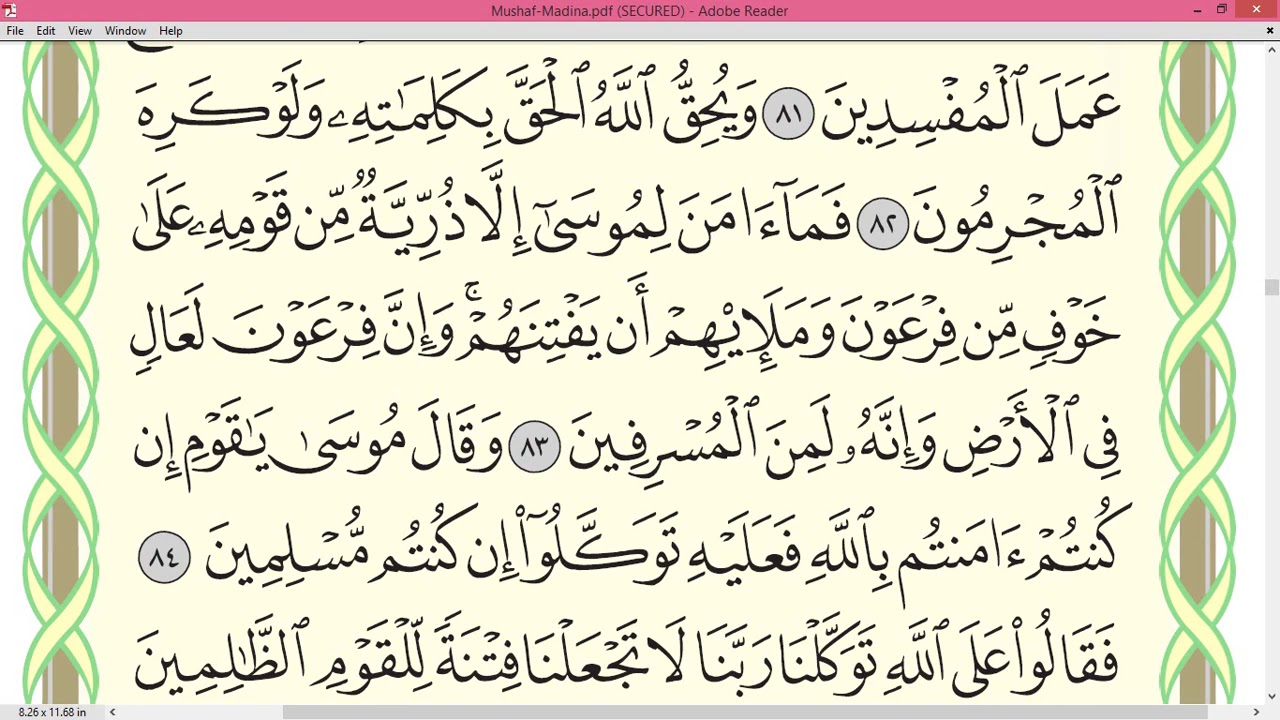 Mushaf-Madina.pdf (SECURED) - Adobe Reader
File Edit View Window Help
عَمَلَ ٱلْمُفْسِدِينَ ٨١ وَيُحِقُّ ٱللَّهُ ٱلْحَقَّ بِكَلِمَٰتِهِۦ وَلَوْ كَرِهَ
ٱلْمُجْرِمُونَ ٨٢ فَمَآ ءَامَنَ لِمُوسَىٰٓ إِلَّا ذُرِّيَّةٌ مِّن قَوْمِهِۦ عَلَىٰ
خَوْفٍ مِّن فِرْعَوْنَ وَمَلَإِي۟هِمْ أَن يَفْتِنَهُمْ ۚ وَإِنَّ فِرْعَوْنَ لَعَالٍ
فِى ٱلْأَرْضِ وَإِنَّهُۥ لَمِنَ ٱلْمُسْرِفِينَ ٨٣ وَقَالَ مُوسَىٰ يَٰقَوْمِ إِن
كُنتُمْ ءَامَنتُم بِٱللَّهِ فَعَلَيْهِ تَوَكَّلُوٓا۟ إِن كُنتُم مُّسْلِمِينَ ٨٤
فَقَالُوا۟ عَلَى ٱللَّهِ تَوَكَّلْنَا رَبَّنَا لَا تَجْعَلْنَا فِتْنَةً لِّلْقَوْمِ ٱلظَّٰلِمِينَ
8.26 x 11.68 in